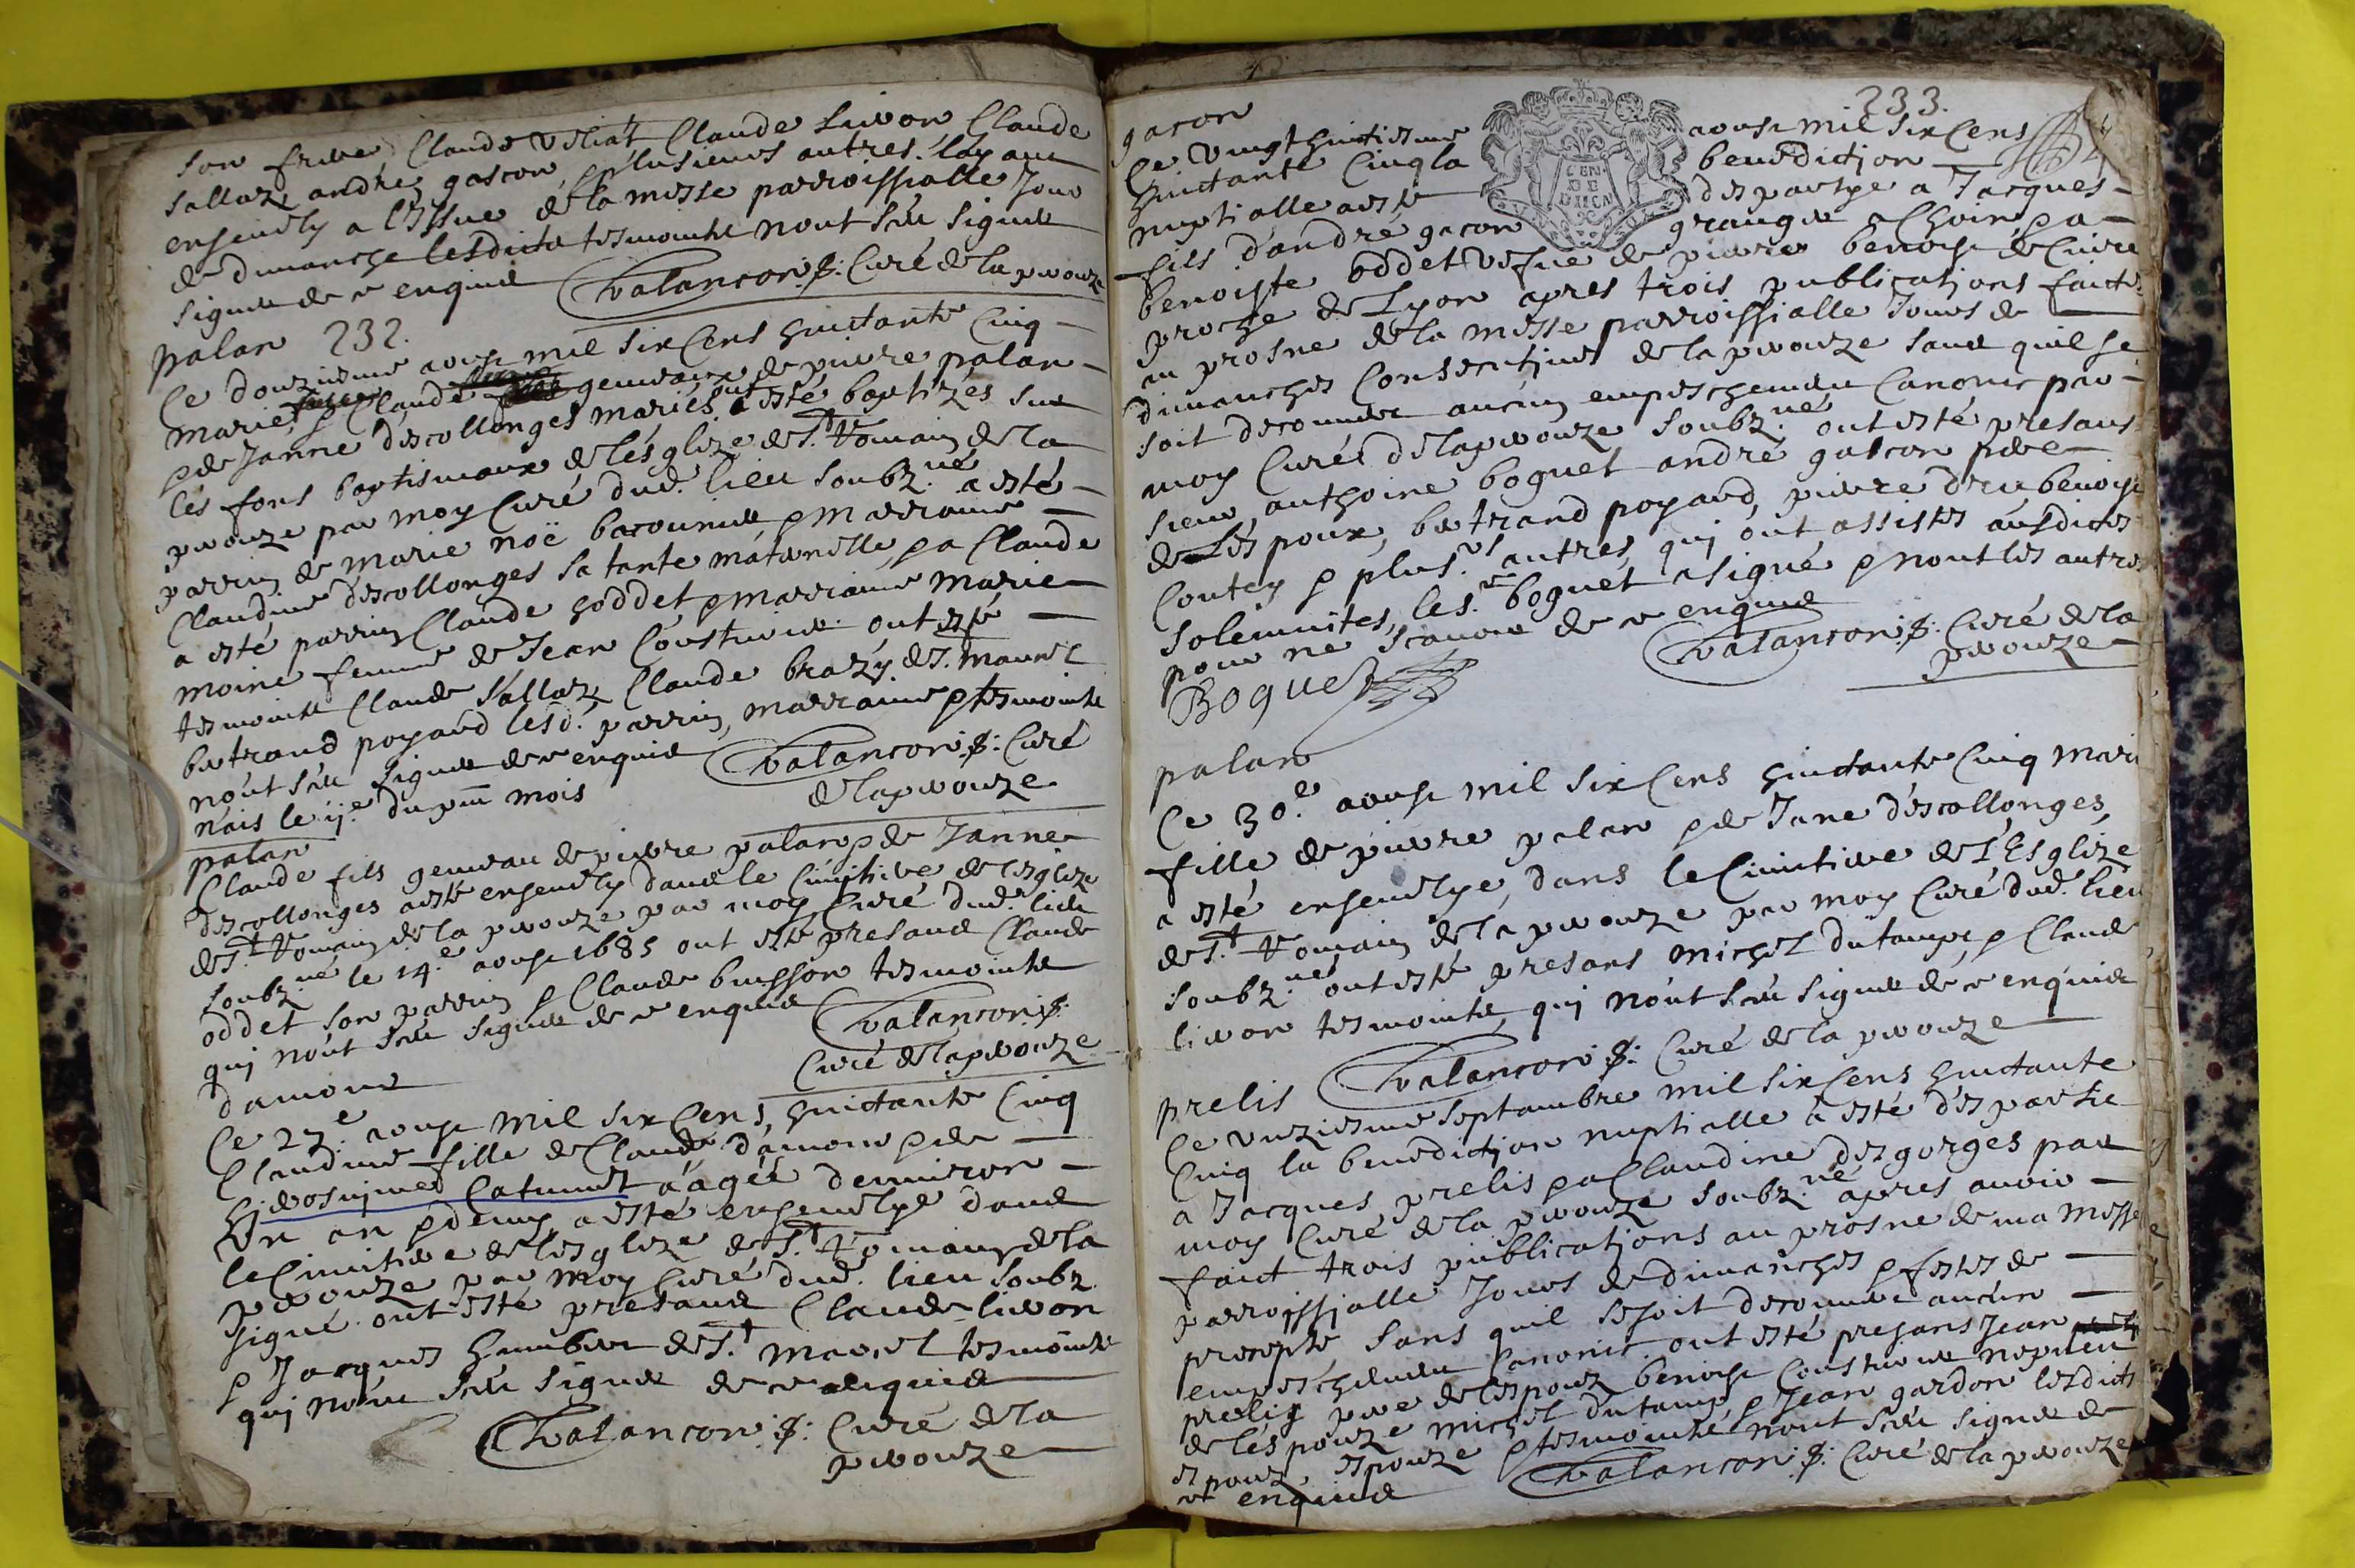 son frere, Claude Veliat Claude Livon Claude
Sallaz andrez gascon, & plusieurs autres. layant
ensevely a l'Issue de la messe parroissialle Jour
de dimanche lesdicts tesmoints n'ont sceu signer
signer de ce enquis Chalancon p: Curé de la perouze
palan 232.
Ce douziesme aoust mil six Cens huictante Cinq
marie & Claude gemeaux de pierre palan
& de Janne descollonges mariés ont esté baptizés sur
les fons baptismaux de lésglize de St. Romain de la
perouze par moy Curé dud. lieu soubz.né a esté
parrin de marie noë & marraine
Claudine descollonges sa tante maternelle, & a Claude
a esté parrin Claude hoddet & marraine marie
moine femme de Jean Cousturier. ont esté
tesmoints Claude Sallaz, Claude brazy de S. marcel
bertrand poyard lesd. parrin, marraine & tesmoints
n'ont sceu signer de ce enquis Chalancon p: Curé
nais le ij.e du pnt mois de la perouze
palan
Claude fils gemeau de pierre palan & de Janne
descollonges a esté ensevely dans le Cimitiere de lesglize
de St. Romain de la perouze par moy Curé dud. lieu
soubz.né le 14.e aoust 1685 ont esté presans Claude
oddet son parrin & Claude buisson tesmoints
quj n'ont sceu signer de ce enquis Chalancon p:
Curé de la perouze
damour
Ce 27.e aoust mil six Cens, huictante Cinq
Claudine fille de Claude damour & de
hierosijme Catimel aagée d'environ
Un an & demy, a esté ensevelye dans
le Cimitiere de lesglize de St. Romain de la
perouze par moy Curé dud. lieu soubz
signé ont esté presans Claude livon
& Jacques humbert de St. marcel tesmoints
quj n'ont sceu signer de ce enquis
Chalancon p: Curé de la
perouze
233.
gacon
Ce vingt huictiesme aoust mil six Cens
huictante Cinq la benediction
nuptialle a esté despartye a Jacques
fils d'andré gacon & a
benoiste oddet vefue de pierre benoist de Cuire
proche de Lyon apres trois publications faictes
au prosne de la messe parroissialle Jours de
dimanches Consecutjues de la perouze sans quil se
soit descouuert aucun empeschement Canonic par
moy Curé de la perouze soubz.né ont esté presans
sieur anthoine boguet andré gascon pere
de Lespoux, bertrand poyard, pierre benoist
Coutey & plus.rs autres, quj ont assistes ausdictes
solemnites, le s.r boguet a signé & non les autres
pour ne scavoir de ce enquis
Chalancon p: Curé de la
perouze
Boguet
palan
Ce 30.e aoust mil six Cens huictante Cinq marie
fille de pierre palan & de Jane descollonges,
a esté ensevelye, dans le Cimitiere de l'Esglize
de St. Romain de la perouze par moy Curé dud. lieu
soubz.né ont esté presans michel dutamps & Claude
livon tesmoints, quj n'ont sceu signer de ce enquis
Chalancon p: Curé de la perouze
prelis
Ce unziesme septambre mil six Cens huictante
Cinq la benedictjon nuptialle a esté despartie
a Jacques prelis & a Claudine desgorges par
moy Curé de la perouze soubz.né apres avoir
faict trois publicatjons au prosne de ma messe
parroissjalle Jours de dimanches & festes de
precepte sans quil se soit descouuert aucun
empeschement Canonic. ont esté presans Jean
prelis pere de lespoux benoist Cousturier nepueu
de lespouze michel dutamps & Jean gardon lesdicts
espoux, espouze & tesmoints n'ont sceu signer de
ce enquis Chalancon p: Curé de la perouze